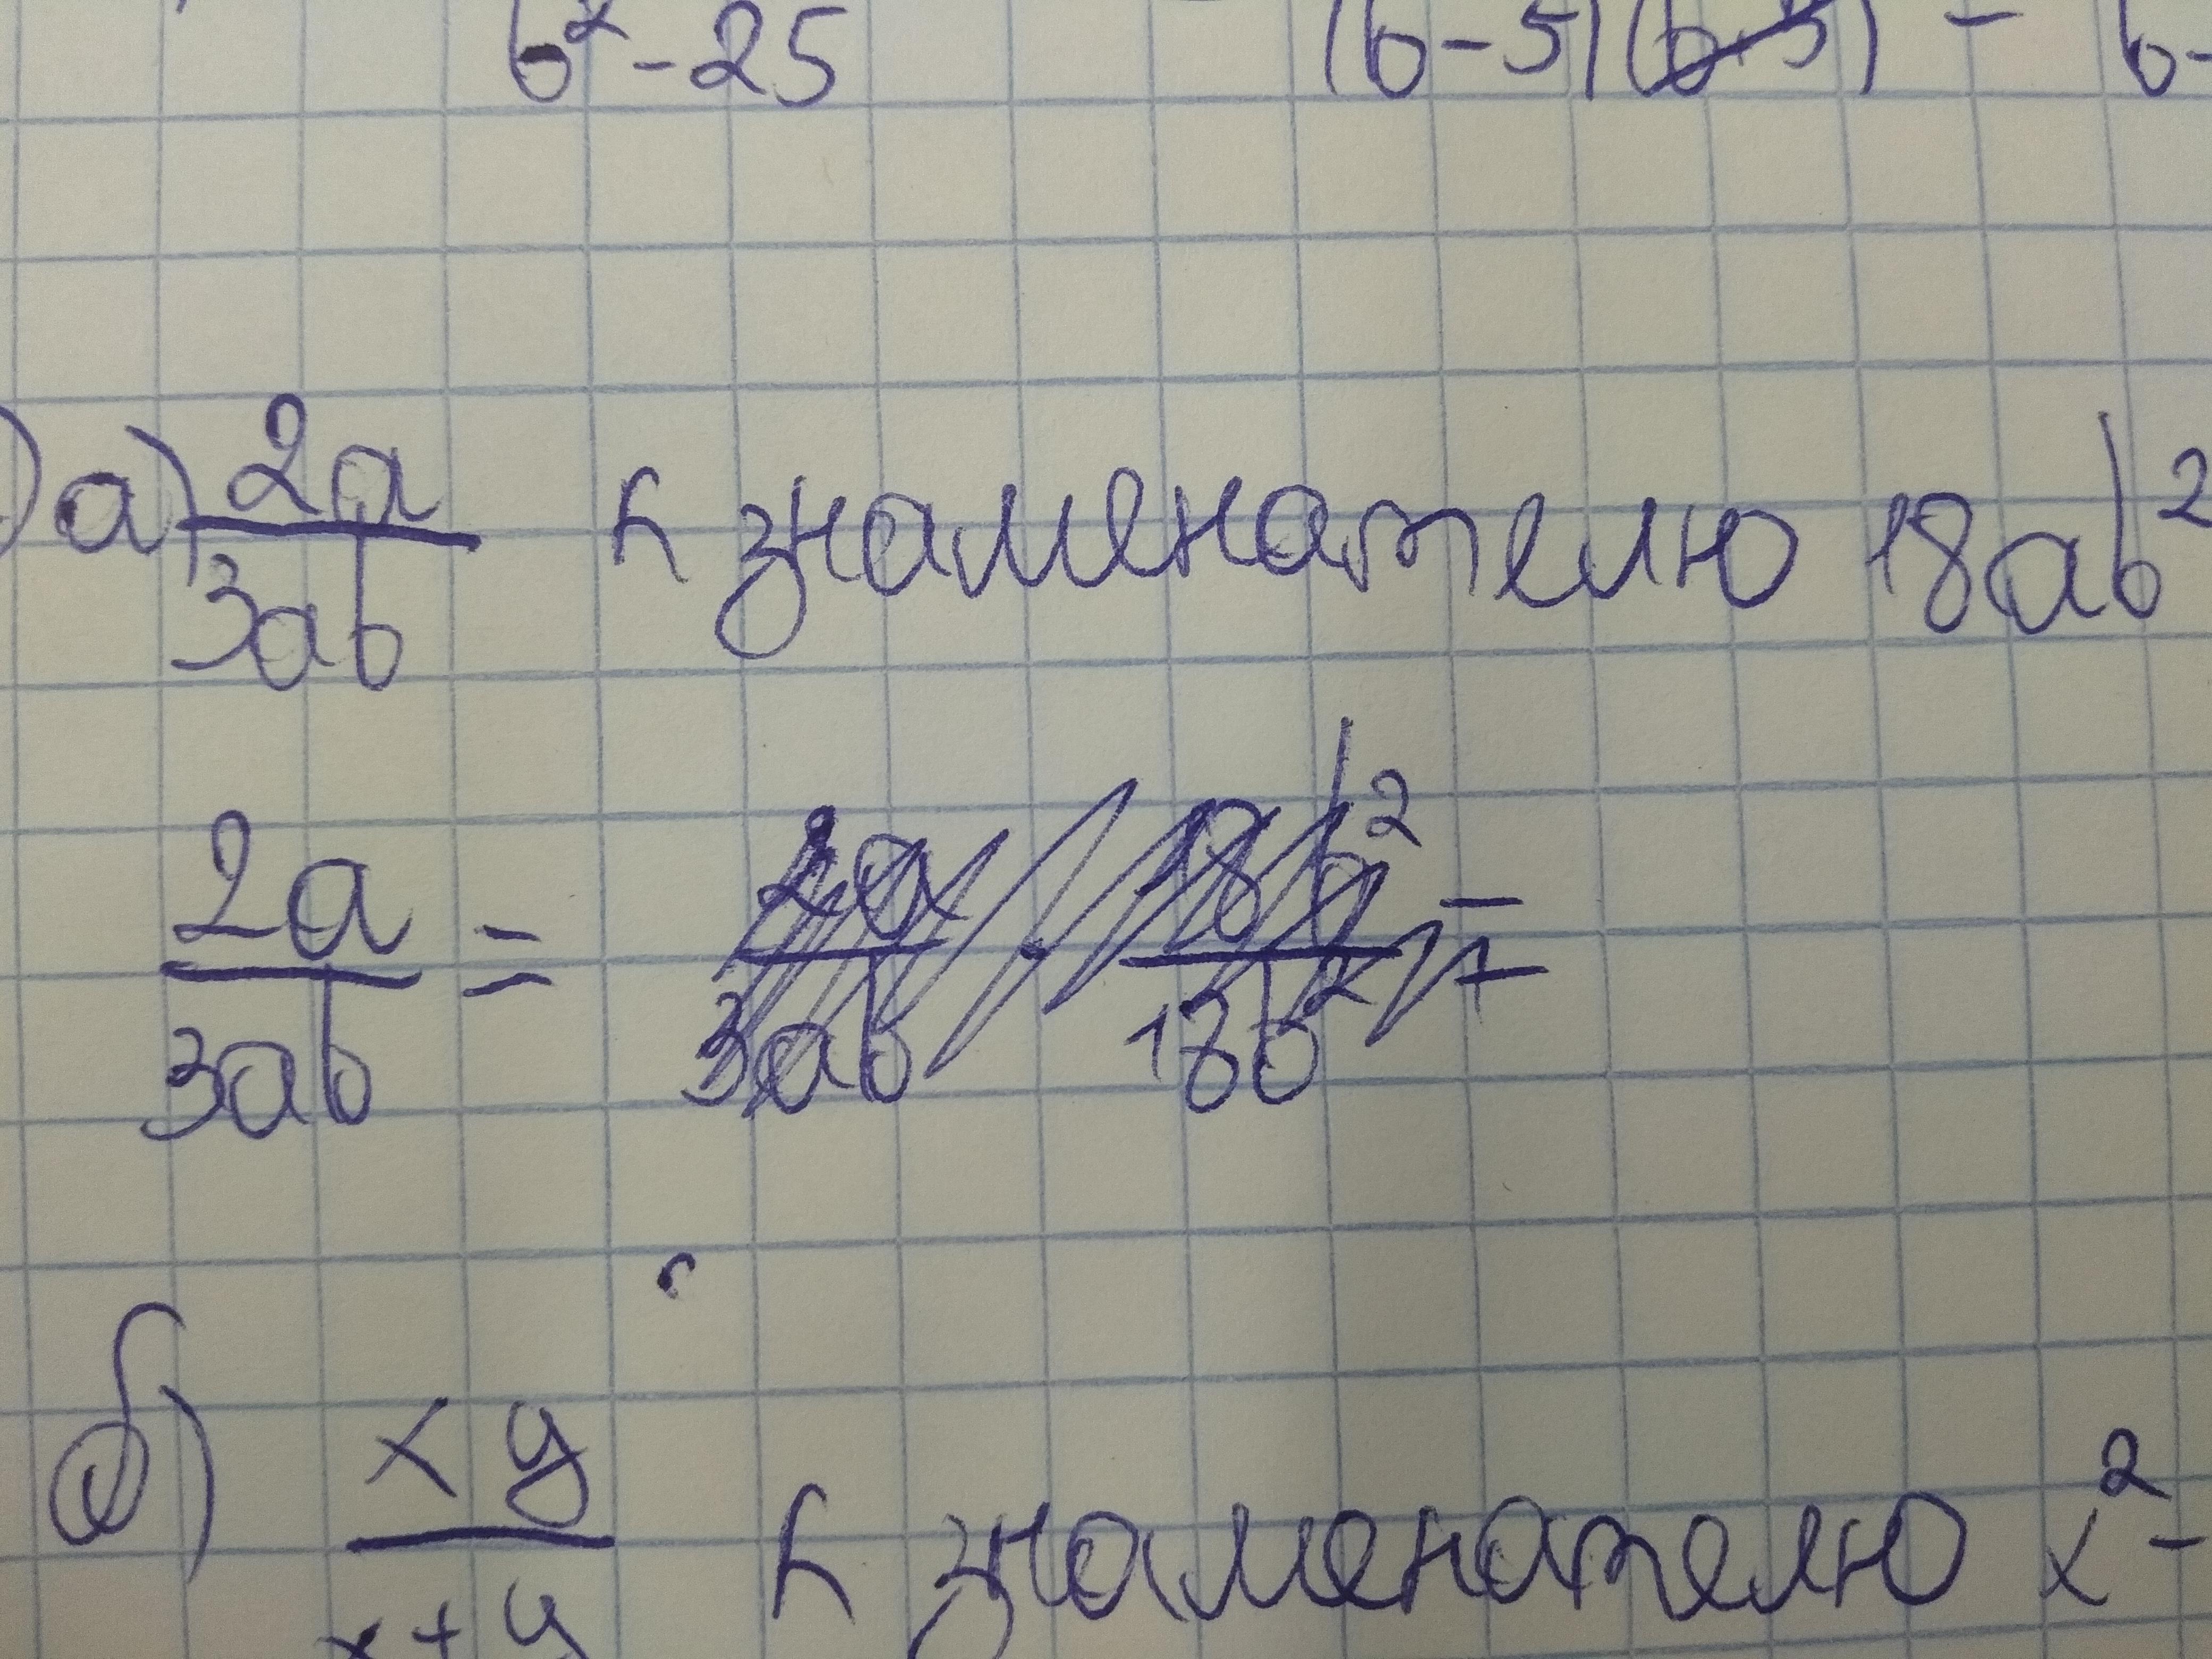 b² - 25 (b-5)(b+5) - b-
) а) 2a/3ab к знаменателю 18ab²
2a/3ab = 2a/3ab · 18b²/18b² =
б) xy/x+y к знаменателю x² -